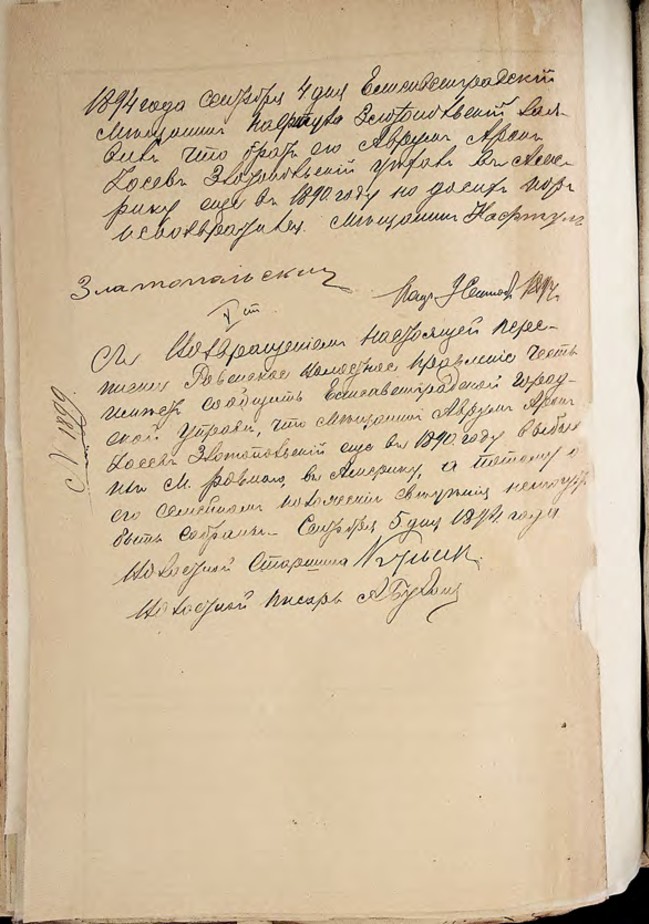 1894 года сентября 4 дня Елисаветградскiй
мещанинъ Нафтула Златопольскiй зая-
вилъ что братъ его Аврумъ Аронъ
Іосевъ Златопольскiй уехалъ въ Аме-
рику еще въ 1890 году но до сихъ поръ
не возвратился. Мещанинъ Нафтулъ
Златопольский
1894.
Съ возвращенiемъ настоящей пере-
писки Ровенское волостное правленiе честь
имеетъ сообщить Елисаветградской город-
ской управе, что мещанинъ Аврумъ Аронъ
Іосевъ Златопольскiй еще въ 1890 году выбылъ
изъ м. Ровнаго, въ Америку, а потому о
его семейномъ положенiи сведенiя не могутъ
быть собраны. Сентября 5 дня 1894 года
Волостной Старшина
Волостной писарь
№ 1899